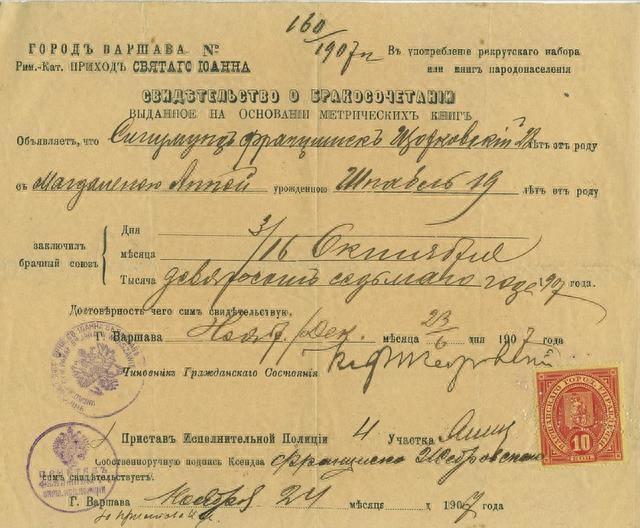 160
1907 г
ГОРОДЪ ВАРШАВА №
Рим.-Кат. ПРИХОДЪ СВЯТАГО ІОАННА
Въ употребленіе рекрутскаго набора
или книгъ народонаселенія
СВИДѢТЕЛЬСТВО О БРАКОСОЧЕТАНІИ
ВЫДАННОЕ НА ОСНОВАНІИ МЕТРИЧЕСКИХЪ КНИГЪ
Объявляетъ, что Сигизмундъ Францишекъ 22 лѣтъ отъ роду
съ Магдаленою Анной урожденною Шнабель 19 лѣтъ отъ роду
заключилъ брачный союзъ
Дня 3/16
мѣсяца Октября
Тысяча девятьсотъ седьмаго года 1907 года.
Достовѣрность чего симъ свидѣтельствую.
Г. Варшава Нояб./Дек. мѣсяца 23/6 дня 1907 года
Чиновникъ Гражданскаго Состоянія
Приставъ Исполнительной Полиціи 4 Участка
Собственноручную подпись Ксендза Францишка
симъ свидѣтельствуетъ.
Г. Варшава Ноября 24 мѣсяца д 1907 года
10
КОП.